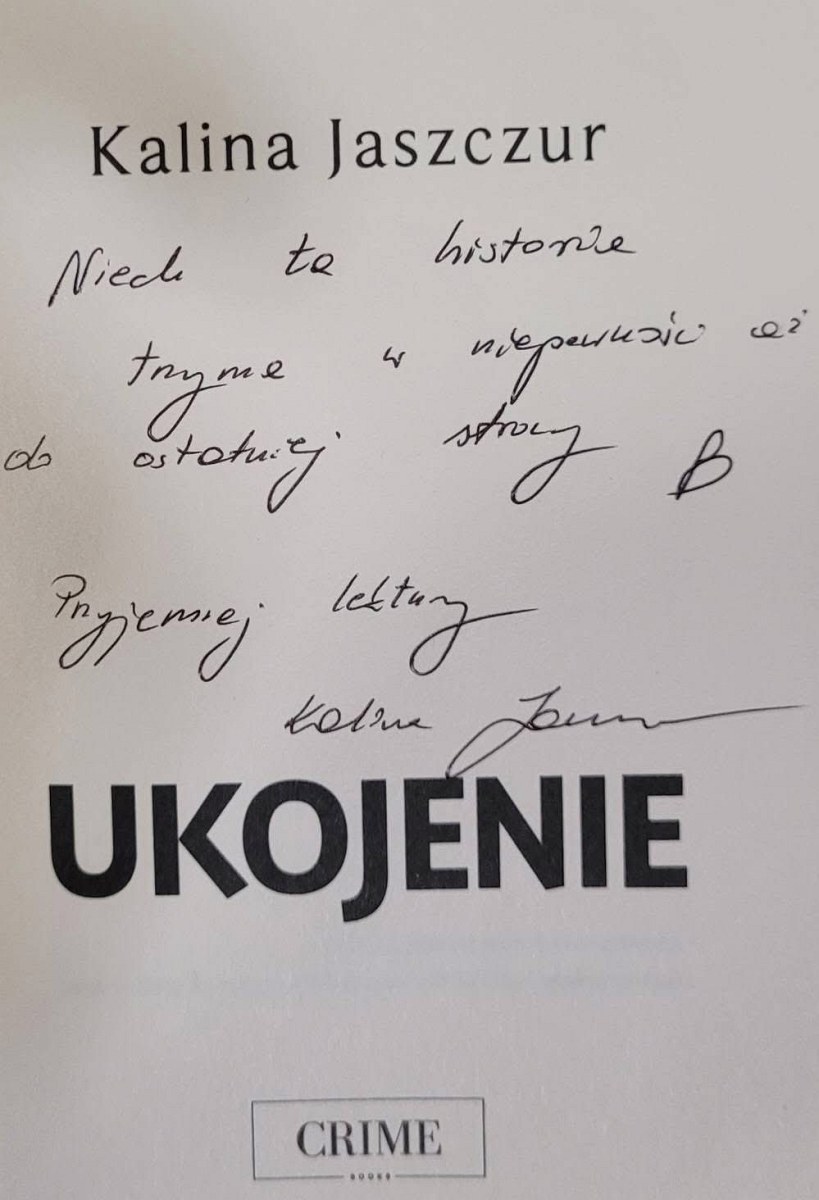 Kalina Jaszczur
Niech ta historia
trzyma w niepewności aż
do ostatniej strony
Przyjemnej lektury
Kalina Jaszczur
UKOJENIE
CRIME
BOOKS